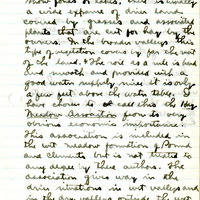 a wide expanse of river lands
covered by grasses and associated
plants that are cut for hay by the
owners. In the broader valleys this
type of vegetation covers by far the most
of the land. The soil as a rule is level
and smooth and provided with a
good water supply since it is only
a few feet above the water table. I
have chosen to call this the Hay
Meadow Association from its very
obvious economic importance.
This association is included
in the wet meadow formation of Pound
and Clements but is not treated to
any degree by these authors. The
association gives way in the
drier situations in wet valleys and
in the valleys outside the wet